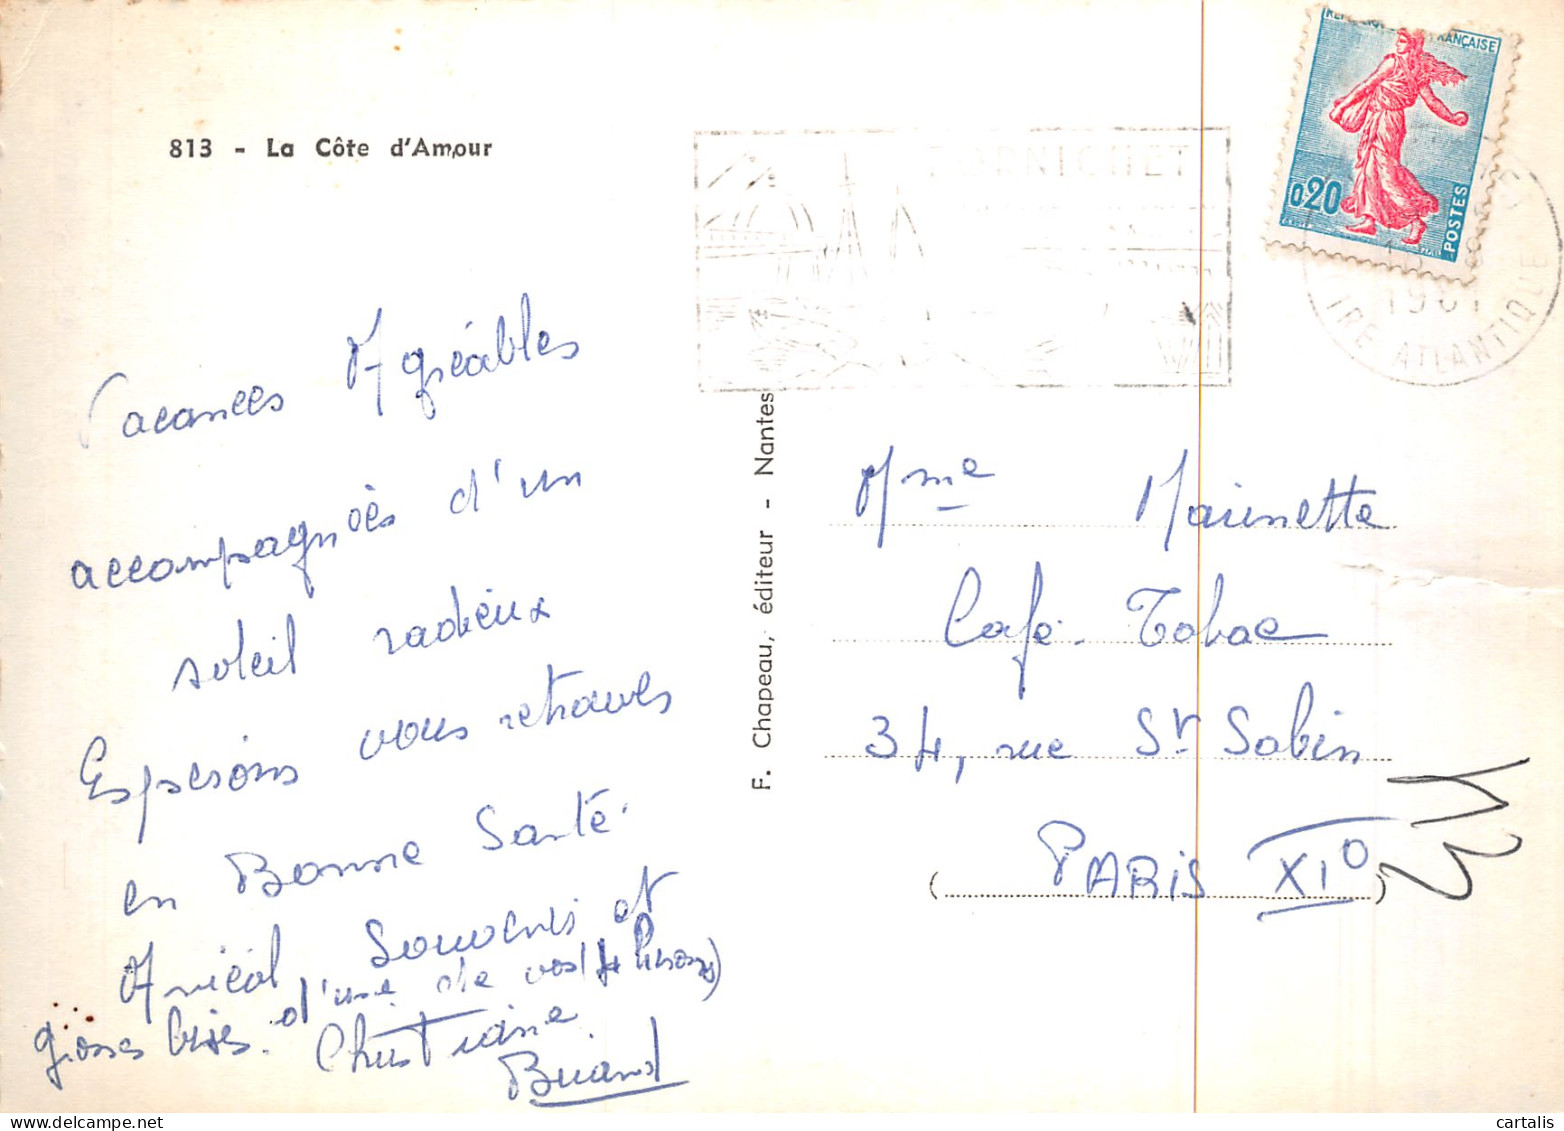 813 - La Côte d'Amour
RÉPUBLIQUE FRANÇAISE
0,20
POSTES
PORNICHET
1961
LOIRE ATLANTIQUE
Vacances Agréables
accompagnées d'un
soleil radieux
Espérons vous retrouver
en Bonne Santé.
Amical Souvenir et
grosses bises. d'une de vos
Christiane
Briand
F. Chapeau, éditeur - Nantes
Mme Marinette
Café-Tabac
34, rue St Sabin
(PARIS XI°)
cartalis
www.delcampe.net